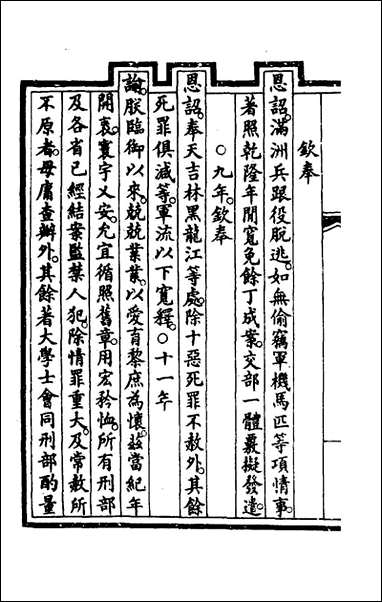 欽奉
恩詔。滿洲兵跟役脫逃。如無偷竊軍機馬匹等項情事。
著照乾隆年間寬免餘丁成案。交部一體覈擬發遣。
○九年。欽奉
恩詔。奉天吉林黑龍江等處。除十惡死罪不赦外。其餘
死罪俱減等。軍流以下寬釋。○十一年
諭。朕臨御以來。兢兢業業。以愛育黎庶為懷。茲當紀年
開袠。寰宇乂安。允宜循照舊章。用宏矜恤。所有刑部
及各省已經結案監禁人犯。除情罪重大。及常赦所
不原者。毋庸查辦外。其餘著大學士會同刑部酌量